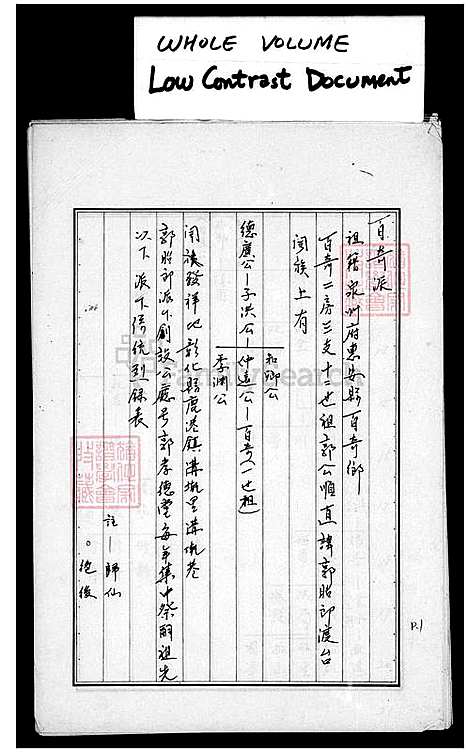 WHOLE VOLUME
Low Contrast Document
百奇派
祖籍泉州府惠安縣百奇鄉
百奇二房三支十二世祖郭公順直諱郭胎郎渡台
閩族上有
和卿公
德廣公—子洪公—仲遠公—百奇(一世祖)
季渊公
閤族發祥地彰化縣鹿港鎮溝墘里溝墘巷
郭胎郎派下創設公廳号郭孝德堂每年集中祭祠祖先
以下派下系統列錄表
註—歸仙
。絕後
P.1
FamilySearch